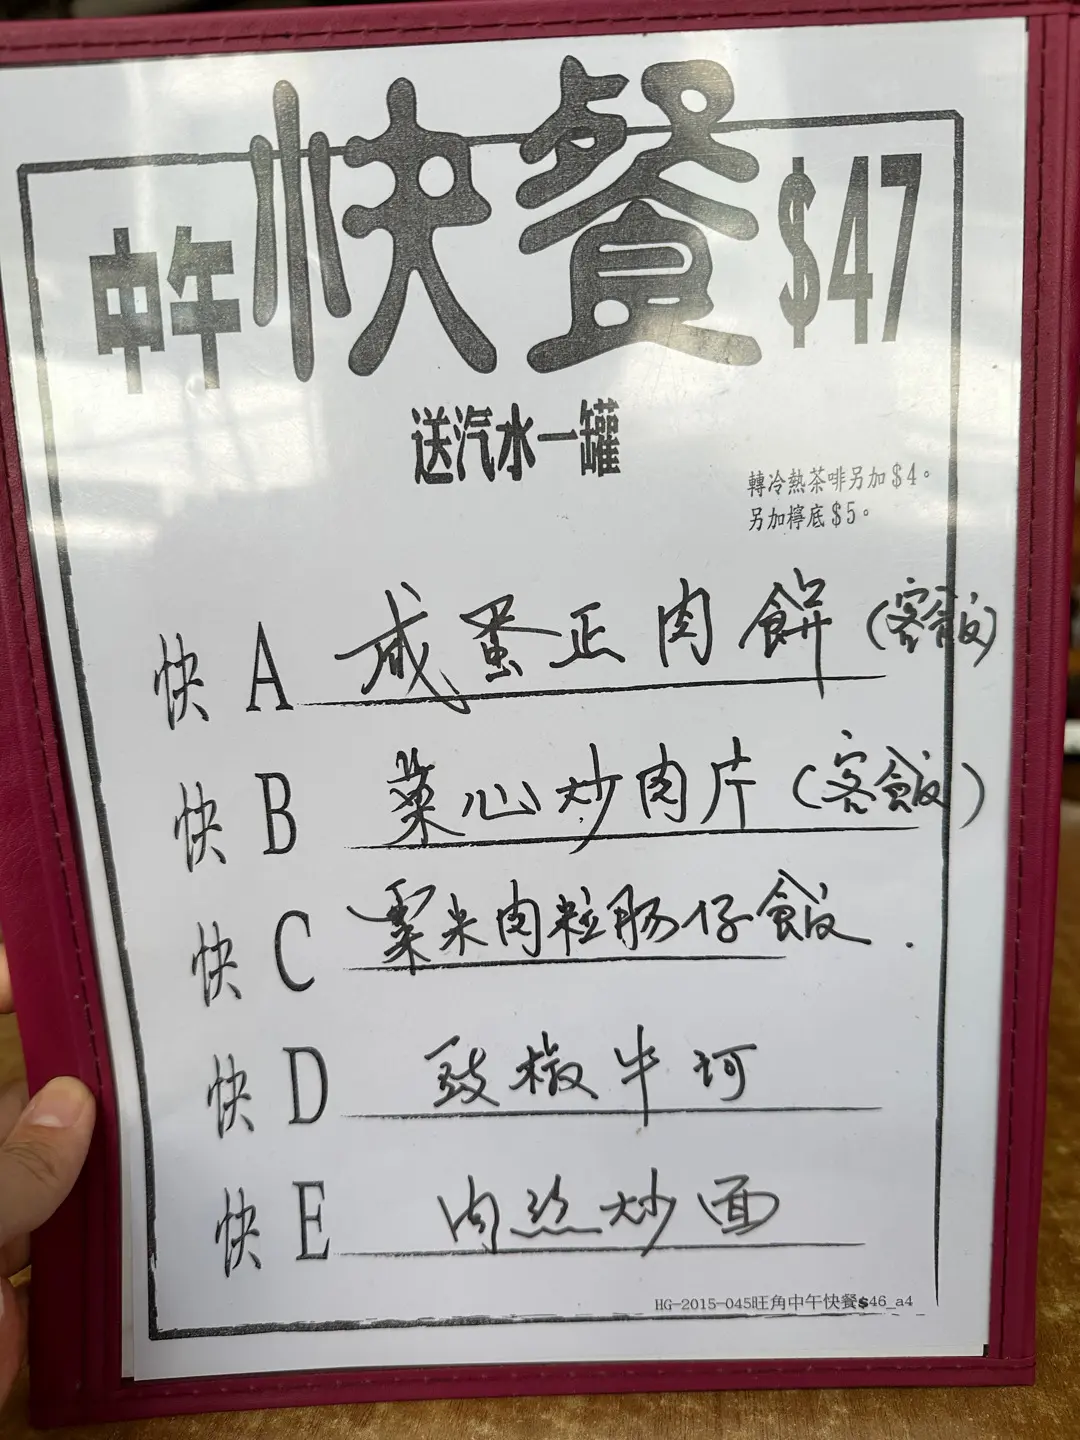 中午快餐$47
送汽水一罐
轉冷熱茶啡另加$4。
另加檸底$5。
快A 咸蛋正肉餅(客飯)
快B 菜心炒肉片(客飯)
快C 粟米肉粒肠仔飯.
快D 豉椒牛河
快E 肉丝炒面
HG-2015-045旺角中午快餐$46_a4